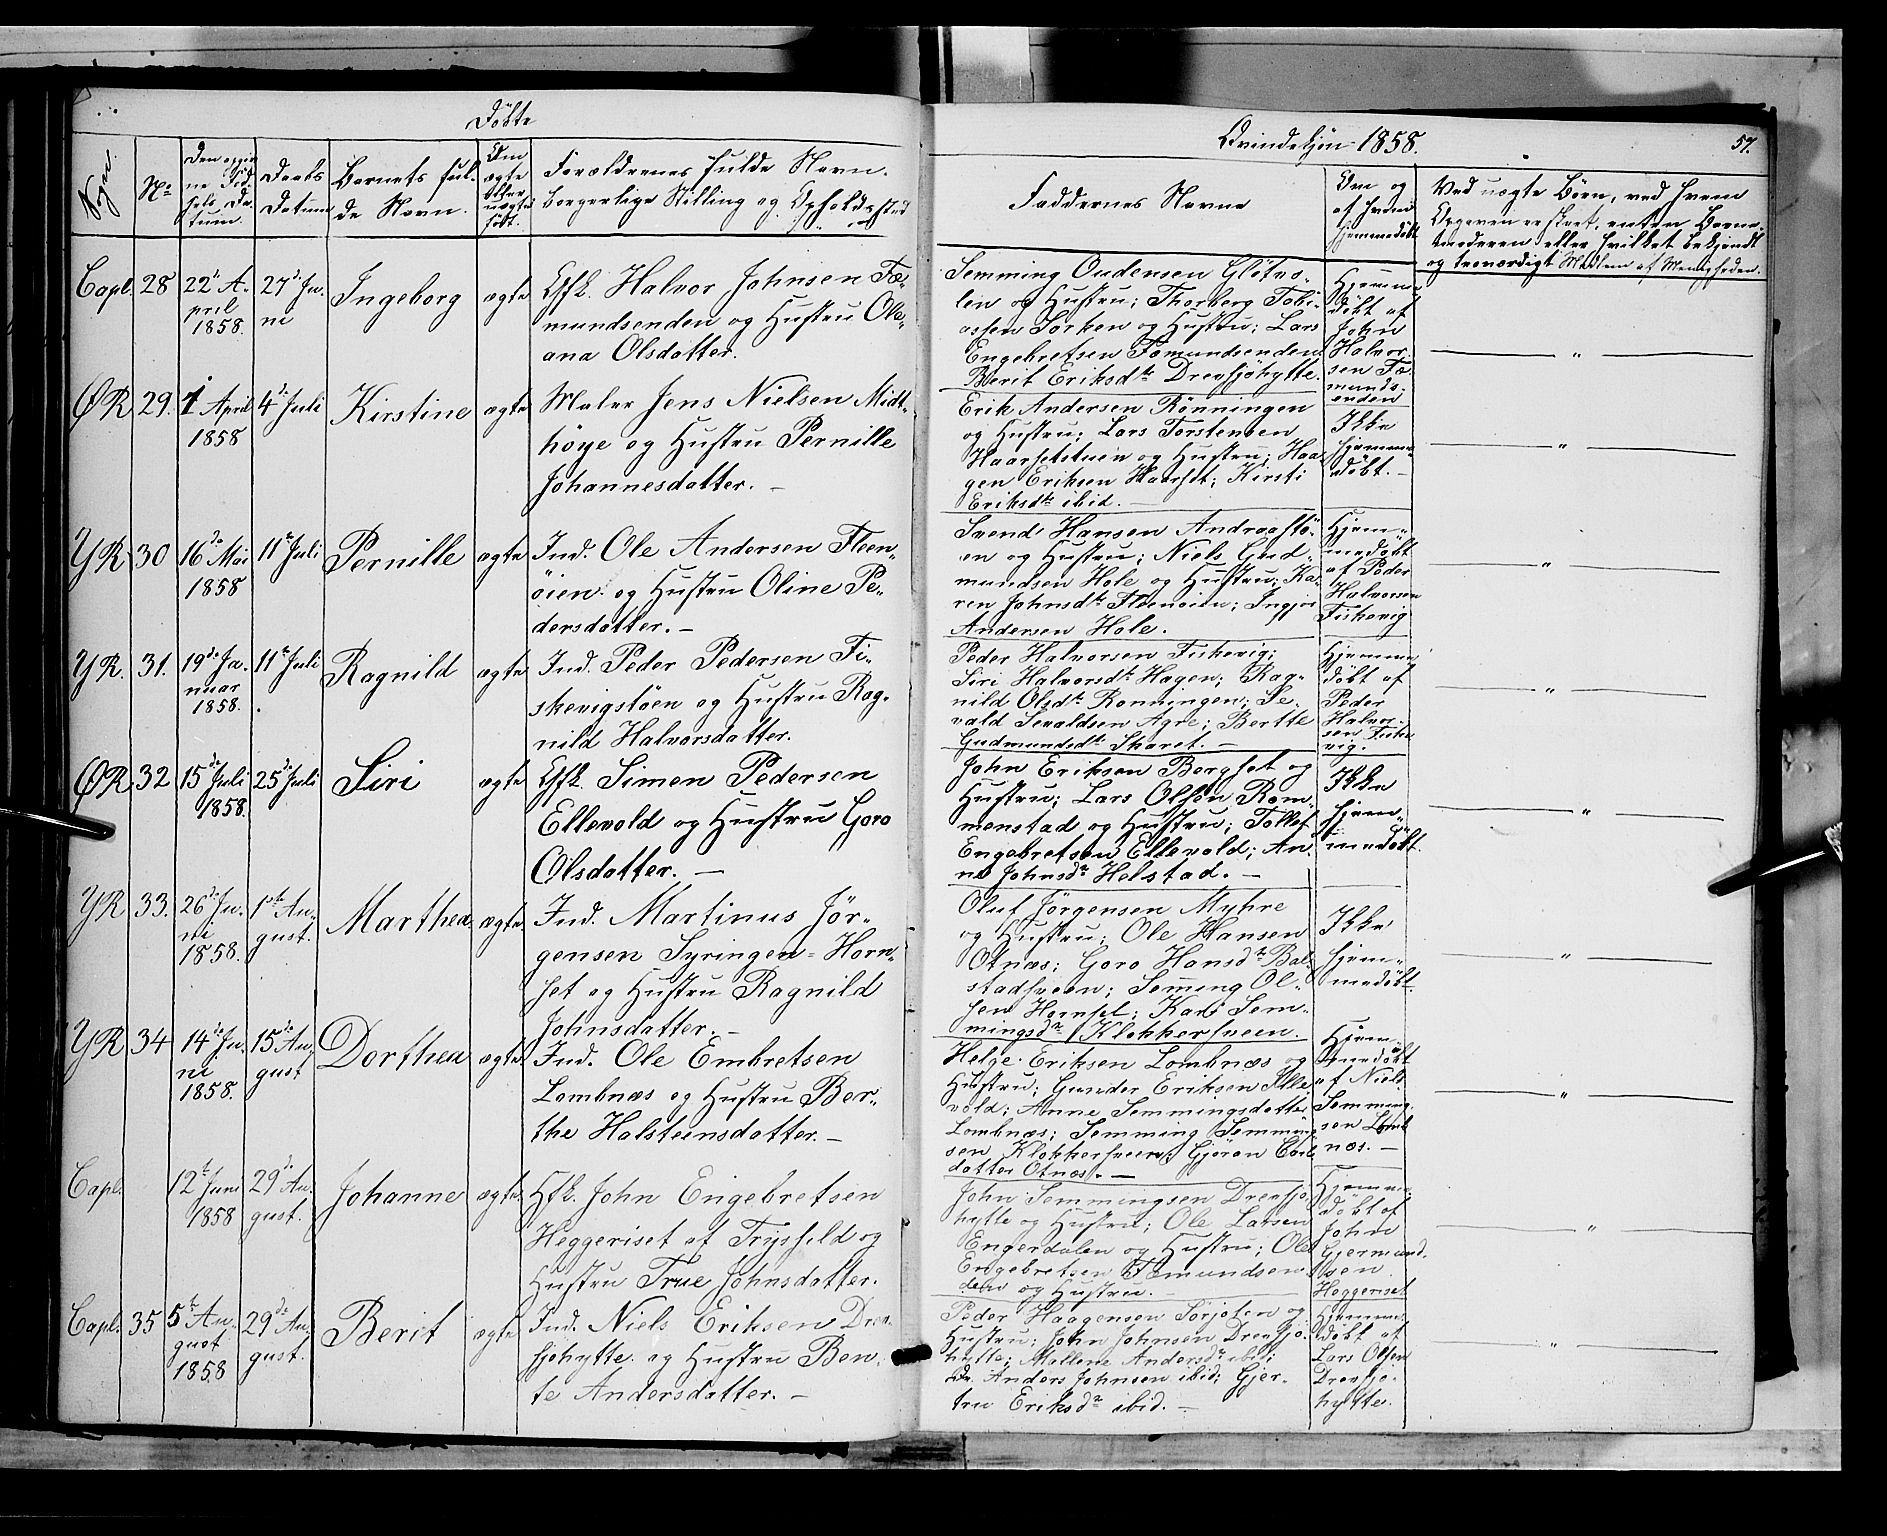 Døbte
Qvindekjøn 1858.
57.
Sogn.
No
Den opgiv
ne Fød
sels Da
tum.
Daabs
Datum
Barnets ful-
de Navn.
Om
ægte
eller
uægte
født.
Forældrenes fulde Navn.
borgerlige Stilling og Opholdssted
Faddernes Navne
Om og
af hvem
hjemmedøbt
Ved uægte Børn, ved hvem
Opgaven er skeet, enten Barne-
moderen eller hvilket bekjendt
og troværdigt Medlem af Menigheden.
Capl. 28 22de A- 27de Ju- Ingeborg ægte Gfk. Halvor Johnsen Fæ-
pril ni mundsenden og Hustru Ole-
1858. ana Olsdatter.
Semming Oudensen Gløtvo-
len og Hustru; Thorberg Tobi-
assen Sorken og Hustru; Lars
Engebretsen Fæmundsenden
Berit Eriksdtr Drevsjøhytte.
Hjemme
døbt af
John
Halvor-
sen Fæ
munds-
enden
ØR 29. 1 April 4de Juli Kirstine ægte Maler Jens Nielsen Midt-
1858 høye og Hustru Pernille
Johannesdatter. —
Erik Andersen Rønningen
og Hustru; Lars Torstensen
Haarsetstuen og Hustru; Haa-
gen Eriksen Haarset; Kirsti
Eriksdtr ibid. —
Ikke
hjemme-
døbt. —
YR 30 16de Mai 11te Juli Pernille ægte Ind. Ole Andersen Fleen-
1858 øien og Hustru Oline Pe-
dersdatter. —
Svend Hansen Andraastø-
en og Hustru; Niels Gud-
mundsen Hole og Hustru; Ka-
ren Johnsdtr Fleenøien; Ingjer
Andersen Hole.
Hjem-
medøbt
af Peder
Halvorsen
Fiskevig
YR. 31. 19de Ja- 11te Juli Ragnild ægte Ind. Peder Pedersen Fi-
nuar skevigstøen og Hustru Rag-
1858. nild Halvorsdatter.
Peder Halvorsen Fiskevig;
Siri Halvorsdtr Hagen; Rag-
nild Olsdtr Rønningen; Se-
vald Sevaldsen Agre; Berthe
Gudmundsdtr Skaret. —
Hjemme
døbt af
Peder
Halvor-
sen Fiske
vig.
ØR. 32 15de Juli 25de Juli Siri ægte Gfk. Simen Pedersen
1858. Ellevold og Hustru Goro
Olsdatter. —
John Eriksen Bergset og
Hustru; Lars Olsen Rom-
menstad og Hustru; Tollef
Engebretsen Ellevold; An-
ne Johnsdr Helstad. —
Ikke
hjem-
medøbt.
YR 33. 26de Ju- 1ste Au- Marthea ægte Ind. Martinus Jør-
ni gust. gensen Syringen-Horn-
1858. set og Hustru Ragnild
Johnsdatter. —
Oluf Jørgensen Myhre
og Hustru; Ole Hansen
Otnæs; Goro Hansdtr Bal-
stadsveen; Semming Ol-
sen Hornset; Kari Sem-
mingsdr Klokkersveen.
Ikke
hjem-
medøbt.
YR 34 14de Ju- 15de Au- Dorthea ægte Ind. Ole Embretsen
ni gust Lombnæs og Hustru Ber-
1858. the Halsteensdatter. —
Helge Eriksen Lombnæs og
Hustru; Gunder Eriksen Elle
vold; Anne Semmingsdatter
Lombnæs; Semming Semming-
sen Klokkersveen; Gjøran Carls
datter Otnæs. —
Hjem-
medøbt
af Niels
Semming-
sen Lomb
næs. —
Capl. 12te Juni 29de Au- Johanne ægte Gfk. John Engebretsen
1858 gust. Heggeriset af Trysild og
Hustru True Johnsdatter.
John Semmingsen Drevsjø-
hytte og Hustru; Ole Larsen
Engerdalen og Hustru; Ole
Engebretsen Fæmundsen
den og Hustru. —
Hjemme-
døbt af
John
Gjermund-
sen
Heggeriset
Capl. 35 5te Au- 29de Au- Berit ægte Ind. Niels Eriksen Drev-
gust gust. sjøhytte og Hustru Ben-
1858 te Andersdatter. —
Peder Haagensen Sørjoten og
Hustru; John Johnsen Drevsjø-
hytte; Mallene Andersdr ibid;
Anders Johnsen ibid; Gjer-
tru Eriksdr ibid. —
Hjemme-
døbt af
Lars Olsen
Drevsjø-
hytte.